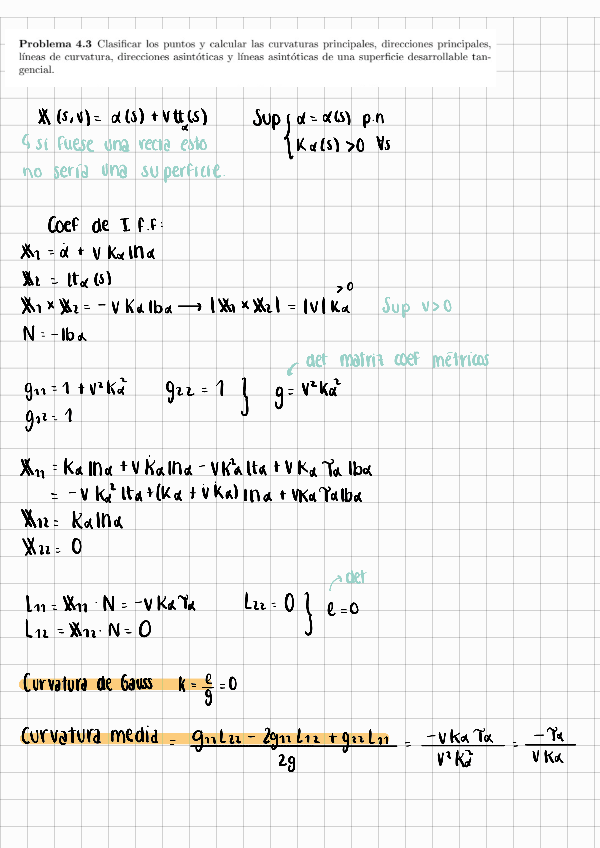 Problema 4.3 Clasificar los puntos y calcular las curvaturas principales, direcciones principales,
líneas de curvatura, direcciones asintóticas y líneas asintóticas de una superficie desarrollable tan-
gencial.
𝕏 (s,v) = α(s) + v 𝕥α(s)    Sup { α = α(s) p.n
Kα(s) > 0 ∀s
↳ si fuese una recta esto
no sería una superficie.
Coef de I f.f:
𝕏₁ = α̇ + v Kα 𝕟α
𝕏₂ = 𝕥α(s)
𝕏₁ × 𝕏₂ = - v Kα 𝕓α → |𝕏₁ × 𝕏₂| = |v| Kα >0    Sup v>0
N = -𝕓α
det matriz coef métricos
g₁₁ = 1 + v²Kα²    g₂₂ = 1 } g = v²Kα²
g₁₂ = 1
𝕏₁₁ = Kα 𝕟α + v K̇α 𝕟α - vKα² 𝕥α + v Kα τα 𝕓α
= - v Kα² 𝕥α + (Kα + v K̇α) 𝕟α + vKα τα 𝕓α
𝕏₁₂ = Kα 𝕟α
𝕏₂₂ = 0
det
L₁₁ = 𝕏₁₁ · N = -v Kα τα    L₂₂ = 0 } ℓ = 0
L₁₂ = 𝕏₁₂ · N = 0
Curvatura de Gauss K = ℓ/g = 0
Curvatura media = (g₁₁L₂₂ - 2g₁₂L₁₂ + g₂₂L₁₁)/2g = (-v Kα τα)/(v² Kα²) = (-τα)/(v Kα)